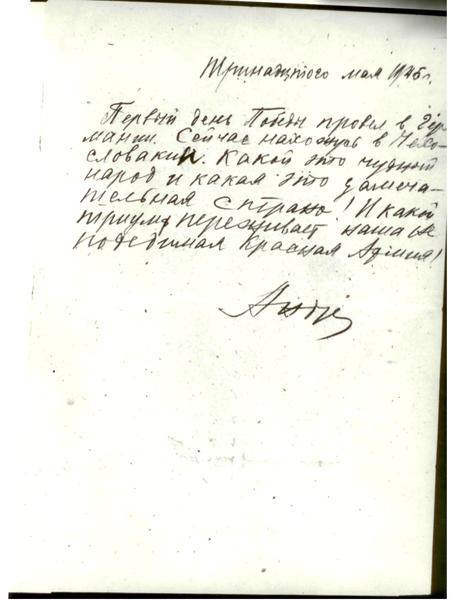 Тринадцатого мая 1945 г.
Первый день Победы провел в Гер
мании. Сейчас нахожусь в Чехо
словакии. Какой это чудный
народ и какая это замеча-
тельная страна! И какой
триумф переживает наша не
победимая Красная Армия!